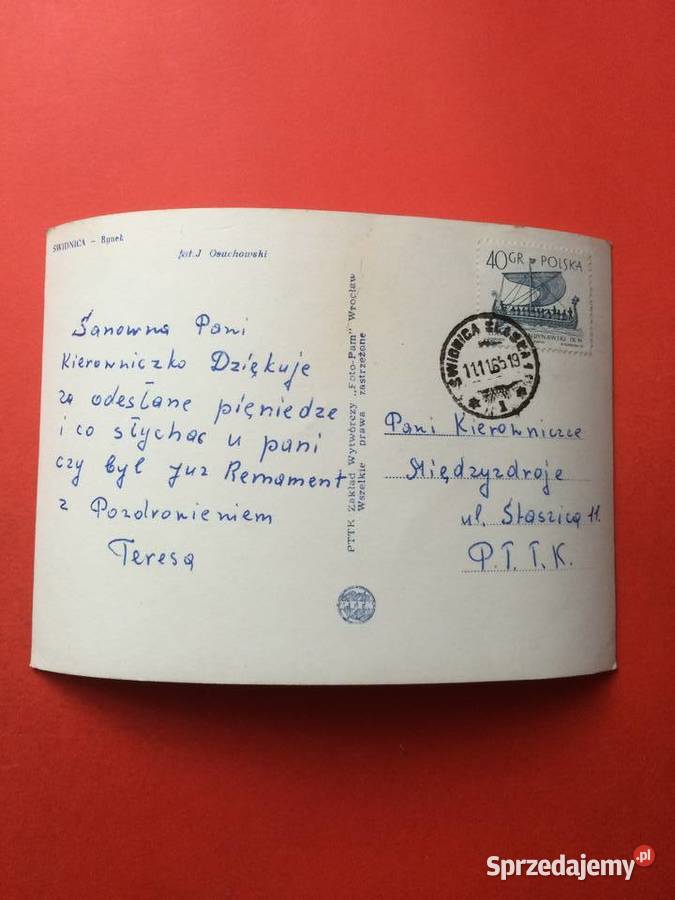 ŚWIDNICA – Rynek
fot. J Osuchowski
Sanowna Pani
Kierowniczko Dziękuje
za odesłane pięniedze
i co słychać u pani
czy był już Remament
z Pozdronieniem
Teresa
PTTK Zakład Wytwórczy „Foto-Pam” Wrocław
Wszelkie prawa zastrzeżone
PTTK
40 GR POLSKA
ŚWIDNICA ŚLĄSKA 1
11.11.65.19
1
Pani Kierownicze
Międzyzdroje
ul. Staszica 11.
P.T.T.K.
Sprzedajemy.pl